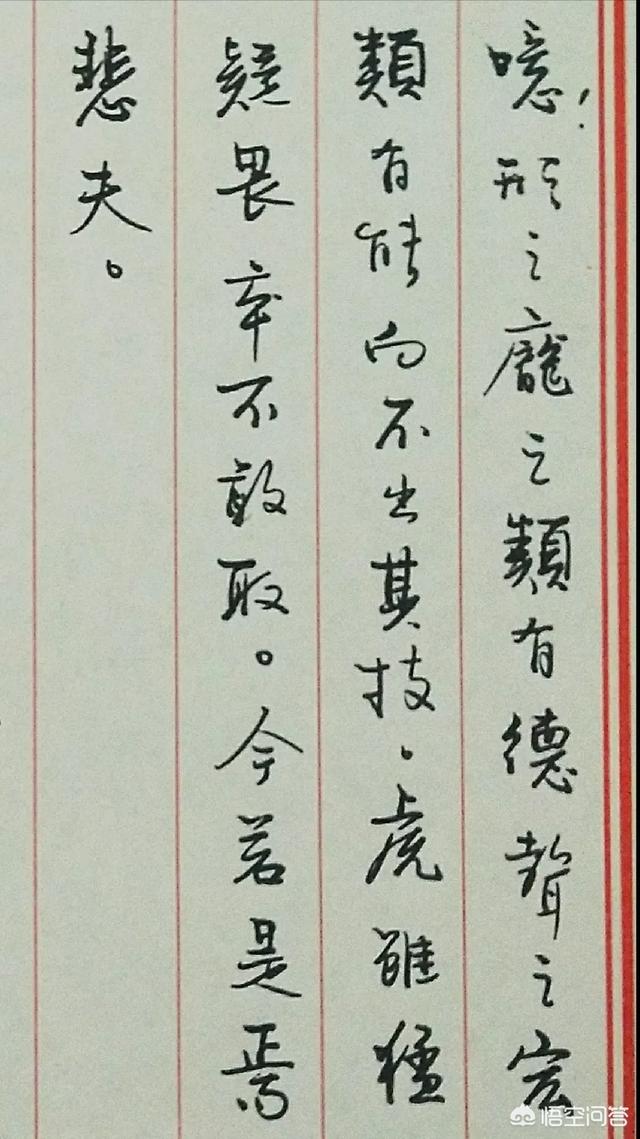 噫！形之龐之類有德聲之宏
類有能向不出其技。虎雖猛
疑畏卒不敢取。今若是焉
悲夫。
悟空问答